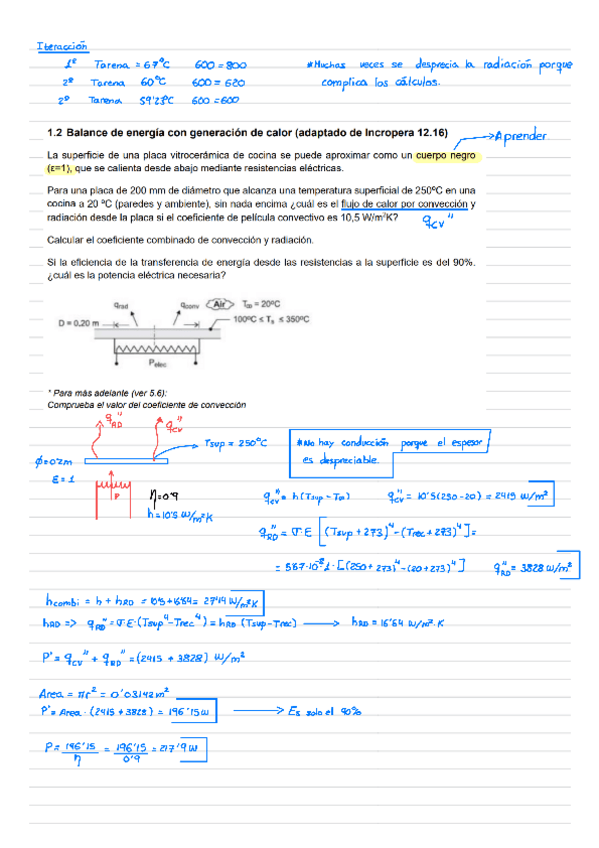 Iteracción
1ª Tarena = 67°C 600 = 800
2ª Tarena 60°C 600 = 620
2ª Tarena 59'23°C 600 = 600
*Muchas veces se desprecia la radiación porque
complica los cálculos.
1.2 Balance de energía con generación de calor (adaptado de Incropera 12.16)
→ Aprender
La superficie de una placa vitrocerámica de cocina se puede aproximar como un cuerpo negro
(ε=1), que se calienta desde abajo mediante resistencias eléctricas.
Para una placa de 200 mm de diámetro que alcanza una temperatura superficial de 250ºC en una
cocina a 20 ºC (paredes y ambiente), sin nada encima ¿cuál es el flujo de calor por convección y
radiación desde la placa si el coeficiente de película convectivo es 10,5 W/m²K?
qcv"
Calcular el coeficiente combinado de convección y radiación.
Si la eficiencia de la transferencia de energía desde las resistencias a la superficie es del 90%.
¿cuál es la potencia eléctrica necesaria?
qrad qconv Air T∞ = 20ºC
D = 0,20 m 100ºC ≤ Ts ≤ 350ºC
Pelec
* Para más adelante (ver 5.6):
Comprueba el valor del coeficiente de convección
qRD" qcv"
Tsup = 250°C
*No hay conducción porque el espesor
es despreciable.
ϕ=0'2m
ε = 1
P
η=0'9
h=10'5 W/m²K
qcv" = h(Tsup - T∞) qcv" = 10'5(250-20) = 2415 W/m²
qRD" = σ·ε [(Tsup + 273)⁴ - (Trec + 273)⁴] =
= 5'67·10⁻⁸·1·[(250+273)⁴-(20+273)⁴] qRD" = 3828 W/m²
hcombi = h + hRD = 10'5+16'64 = 27'14 W/m²K
hRD => qRD" = σ·ε·(Tsup⁴-Trec⁴) = hRD (Tsup-Trec) → hRD = 16'64 W/m²·K
P" = qcv" + qRD" = (2415 + 3828) W/m²
Area = πr² = 0'03142 m²
P' = Area · (2415 + 3828) = 196'15 W → Es solo el 90%
P = 196'15/η = 196'15/0'9 = 217'9 W